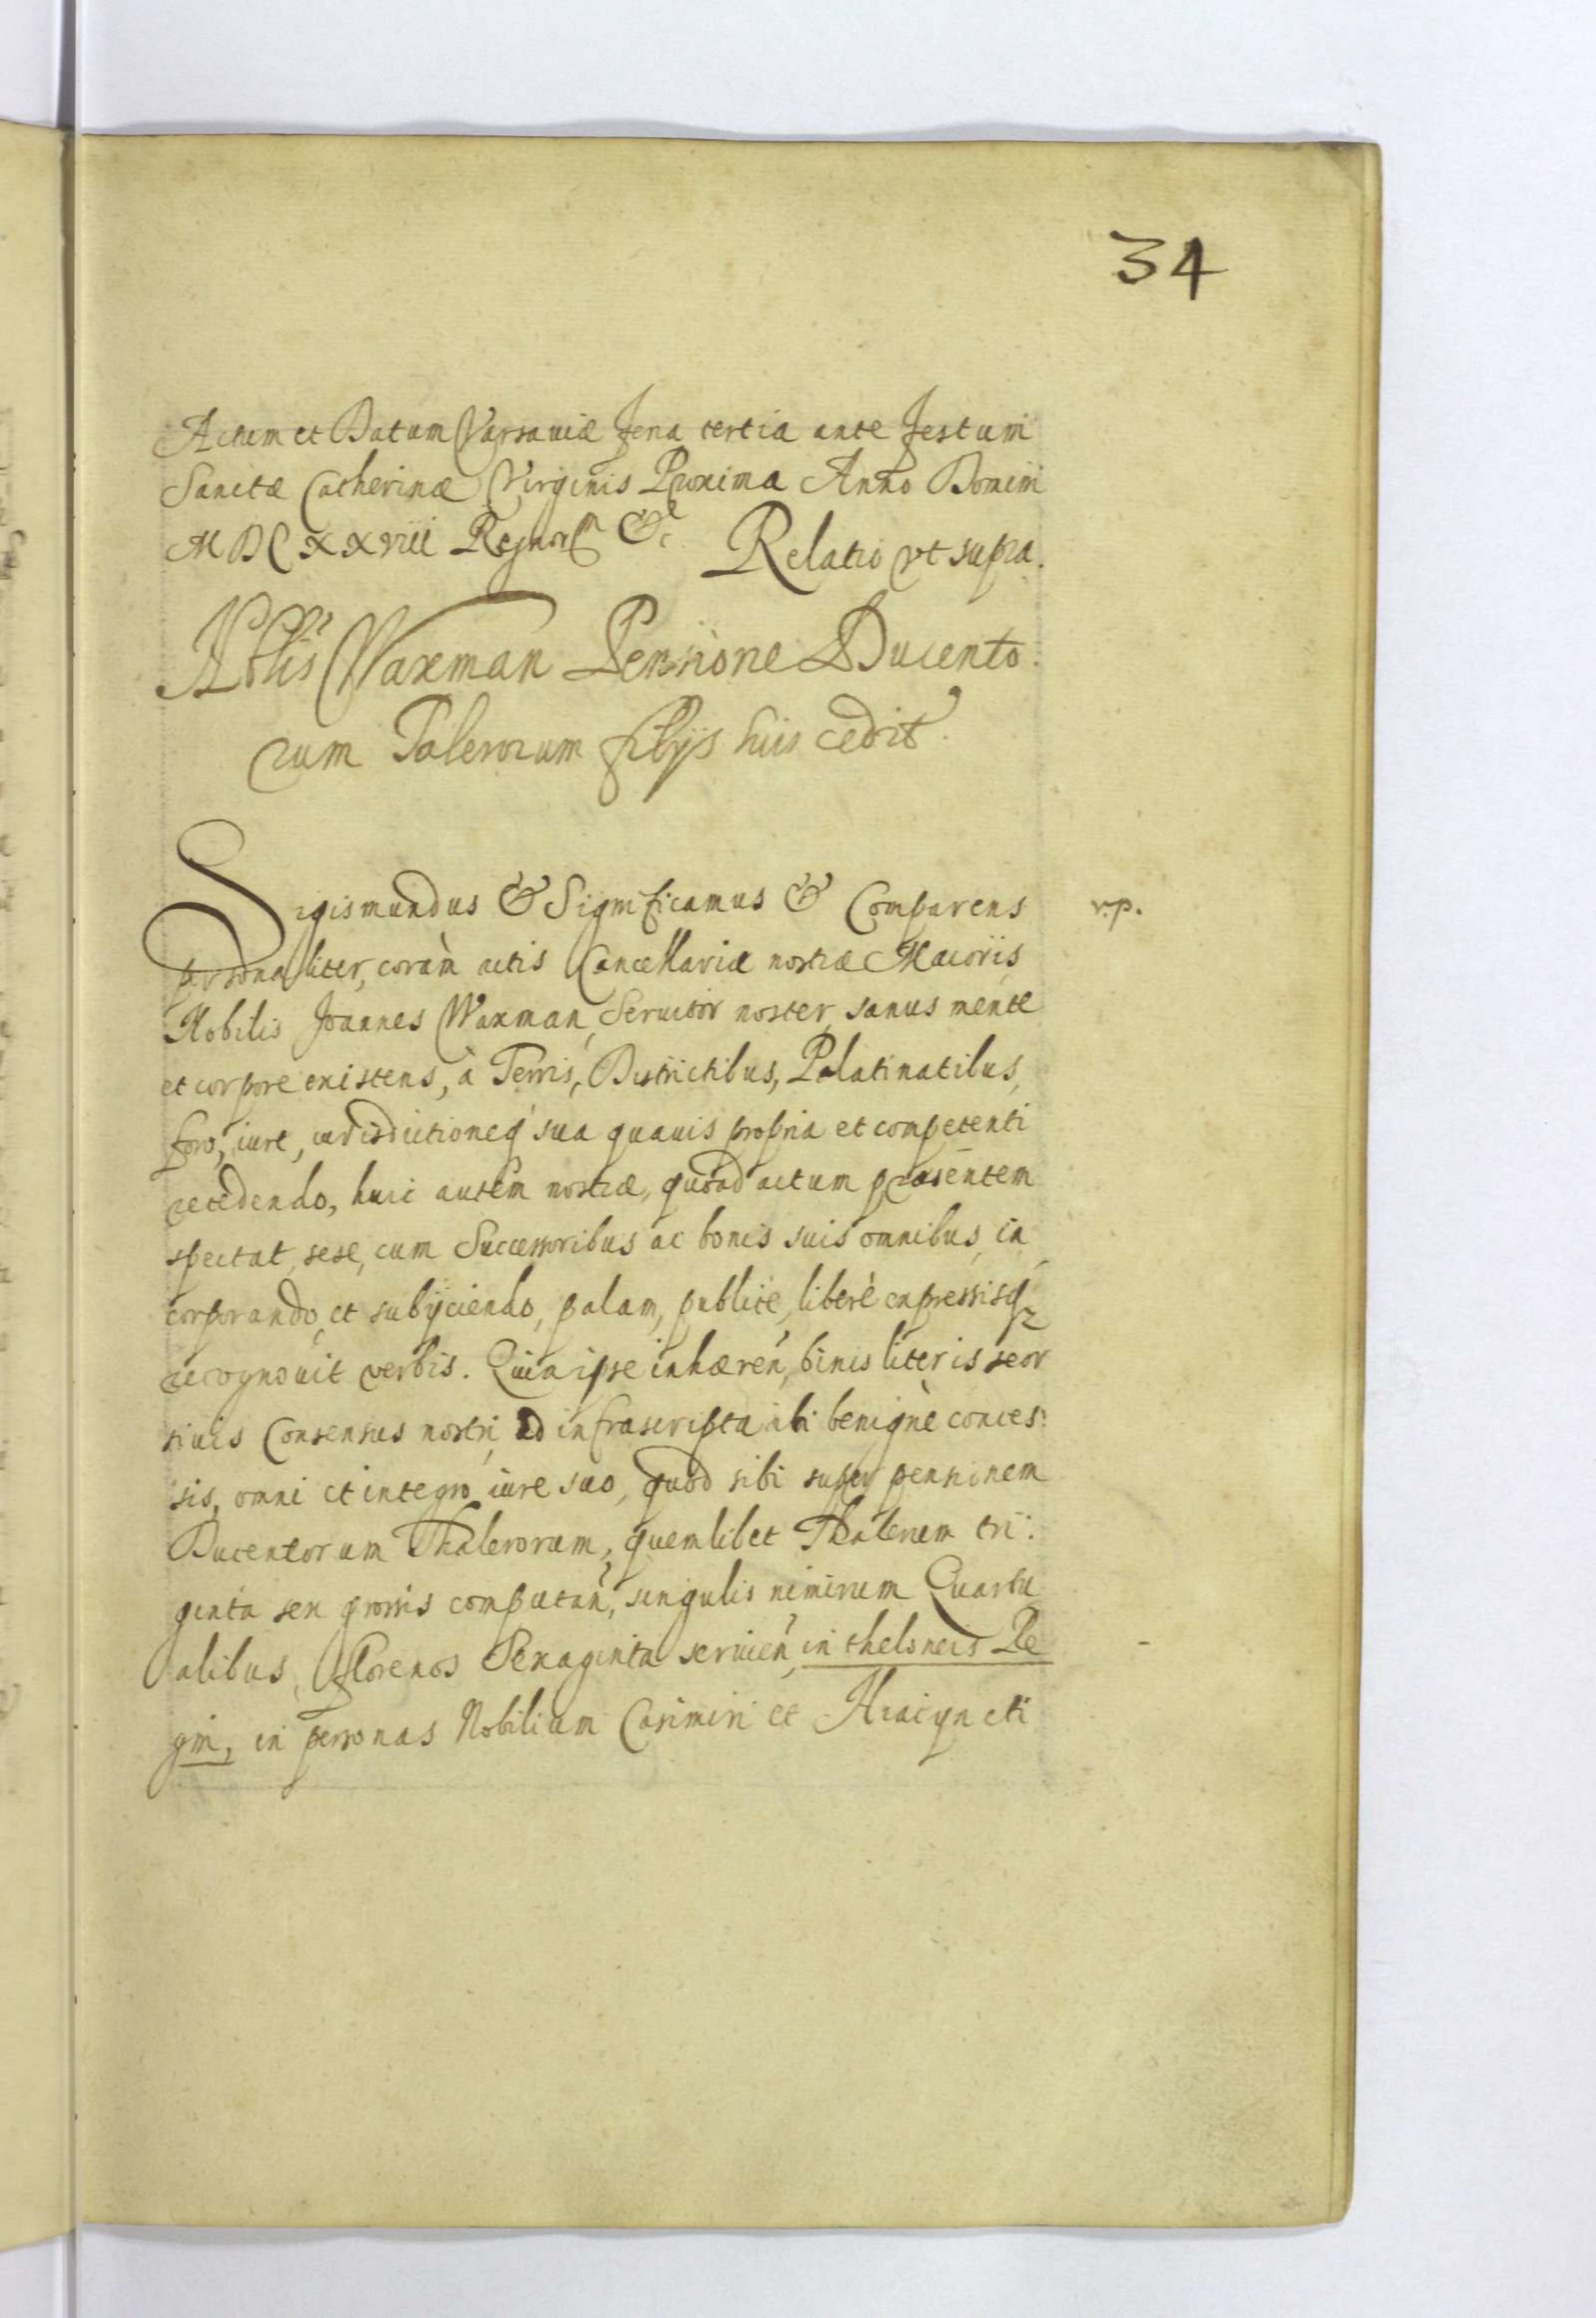 34
Actum et Datum Varsauiæ feria tertia ante festum
Sanctæ Catherinæ Virginis Proxima Anno Domini
MDCXXVIII Regnor &c Relatio vt supra.
Nobilis Waxman Pensione Ducento
rum Talerorum filijs suis cedit.
Sigismundus & Significamus & Comparens
v.p.
personaliter, coràm actis Cancellariæ nostræ Maioris
Nobilis Joannes Waxman, Seruitor noster, sanus mente
et corpore existens, à Terris, Districtibus, Palatinatibus,
foro, iure, iurisdictioneq sua quauis propria et competenti
recedendo, huic autem nostræ, quoad actum præsentem
spectat, sese, cum Successoribus ac bonis suis omnibus, in
corporando, et subijciendo, palam, publicè, liberè expressisq
recognouit verbis. Quia ipse inhæren, binis literis seor
siuis Consensus nostri, ad infrascripta ibi benignè conces:
sis, omni et integro iure suo, quod sibi super pensionem
Ducentorum Thalerorum, quemlibet Thalerum tri:
ginta sex grossis computan, singulis nimirum Quartu
alibus, florenos Sexaginta seruien, in theloneis Re
gni, in personas Nobilium Casimiri et Hiacyncti